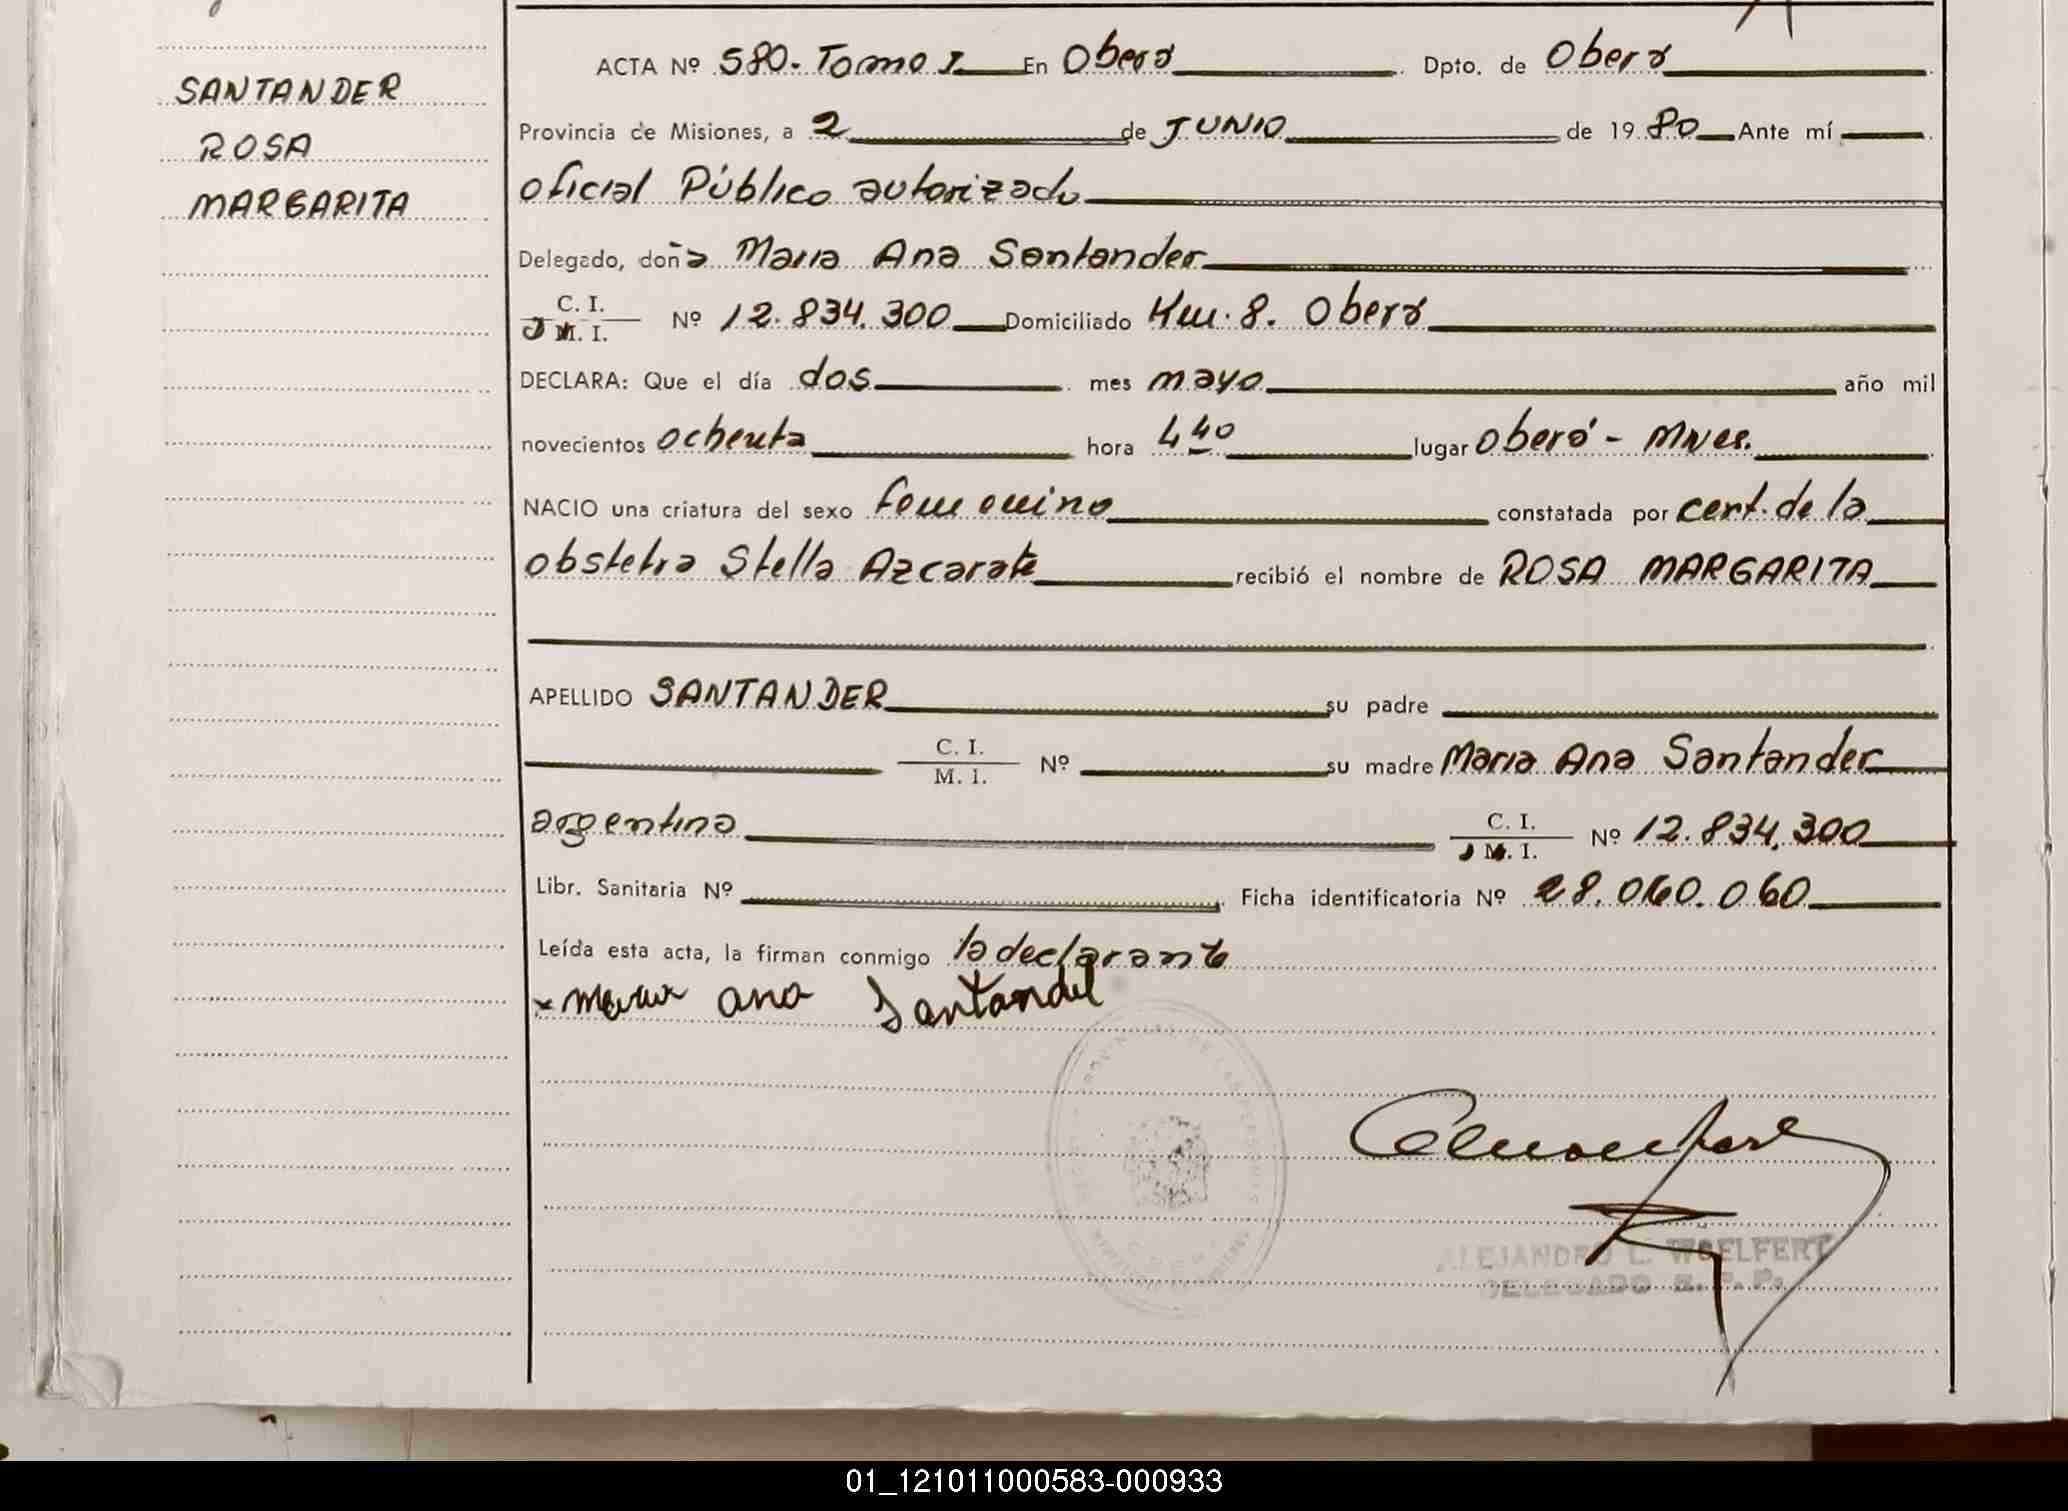 SANTANDER
ROSA
MARGARITA
ACTA Nº 580. Tomo I En Oberá Dpto. de Oberá
Provincia de Misiones, a 2 de JUNIO de 1980 Ante mí
oficial Público autorizado
Delegado, doña Maria Ana Santander
C. I.
M. I.
Nº 12.834.300 Domiciliado Km. 8. Oberá
DECLARA: Que el día dos mes mayo año mil
novecientos ochenta hora 4 40 lugar Oberá - Mnes.
NACIO una criatura del sexo femenino constatada por cert. de la
obstetra Stella Azcarate recibió el nombre de ROSA MARGARITA
APELLIDO SANTANDER su padre
C. I.
M. I.
Nº su madre Maria Ana Santander
argentina
C. I.
M. I.
Nº 12.834.300
Libr. Sanitaria Nº Ficha identificatoria Nº 28.060.060
Leída esta acta, la firman conmigo la declarante
Maria ana Santander
ALEJANDRO L. WOELFERT
DELEGADO
01_121011000583-000933